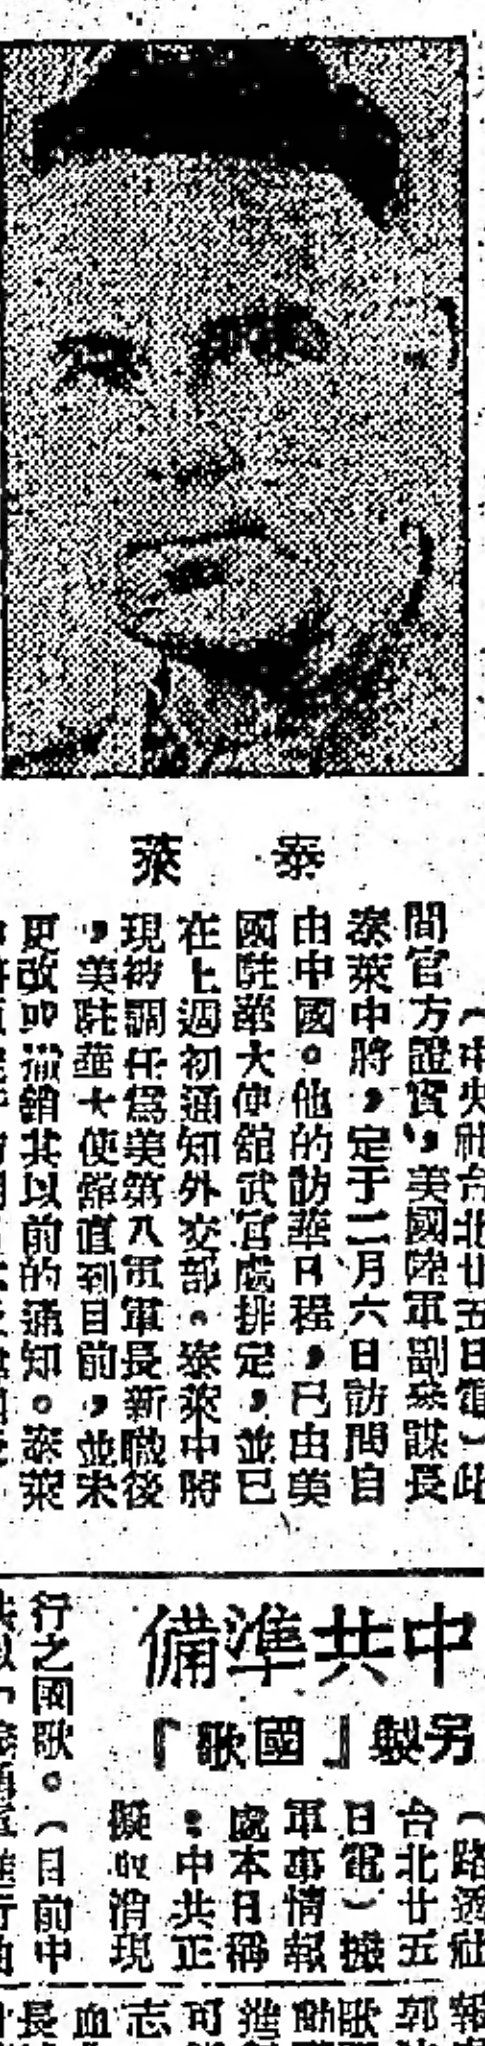 泰萊
（中央社台北廿五日電）此
間官方證實，美國陸軍副參謀長
泰萊中將，定于二月六日訪問自
由中國。他的訪華日程，已由美
國駐華大使館武官處排定，並已
在上週初通知外交部。泰萊中將
現被調任爲美第八軍軍長新職後
，美駐華大使館直到目前，並未
更改或撤銷其以前的通知。泰萊
中共準備
另製「國歌」
（路透社
台北廿五
日電）據
軍事情報
處本日稱
：中共正
擬取消現
行之國歌。（目前中